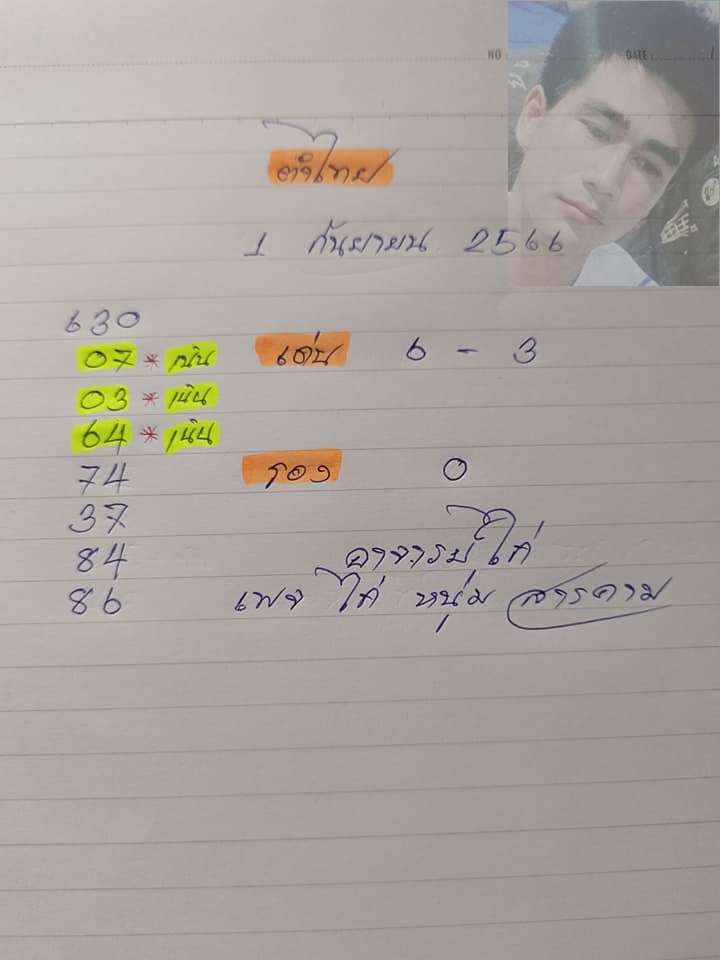 NO DATE :
ดำไทย
1 กันยายน 2566
630
07 * เน้น เด่น 6 - 3
03 * เน้น
64 * เน้น
74 รอง 0
37
84 อาจารย์ ไก่
86 เพจ ไก่ หนุ่ม สารคาม